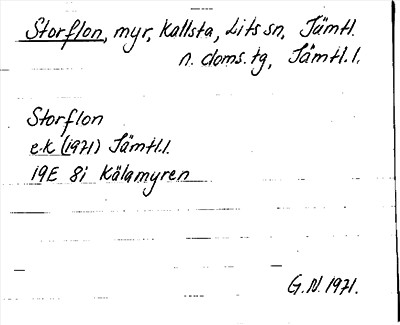 Storflon, myr, Kallsta, Lits sn, Jämtl.
n. doms. tg, Jämtl. l.
Storflon
e.k (1971) Jämtl.l.
19E 8i Kälamyren
G.N. 1971.